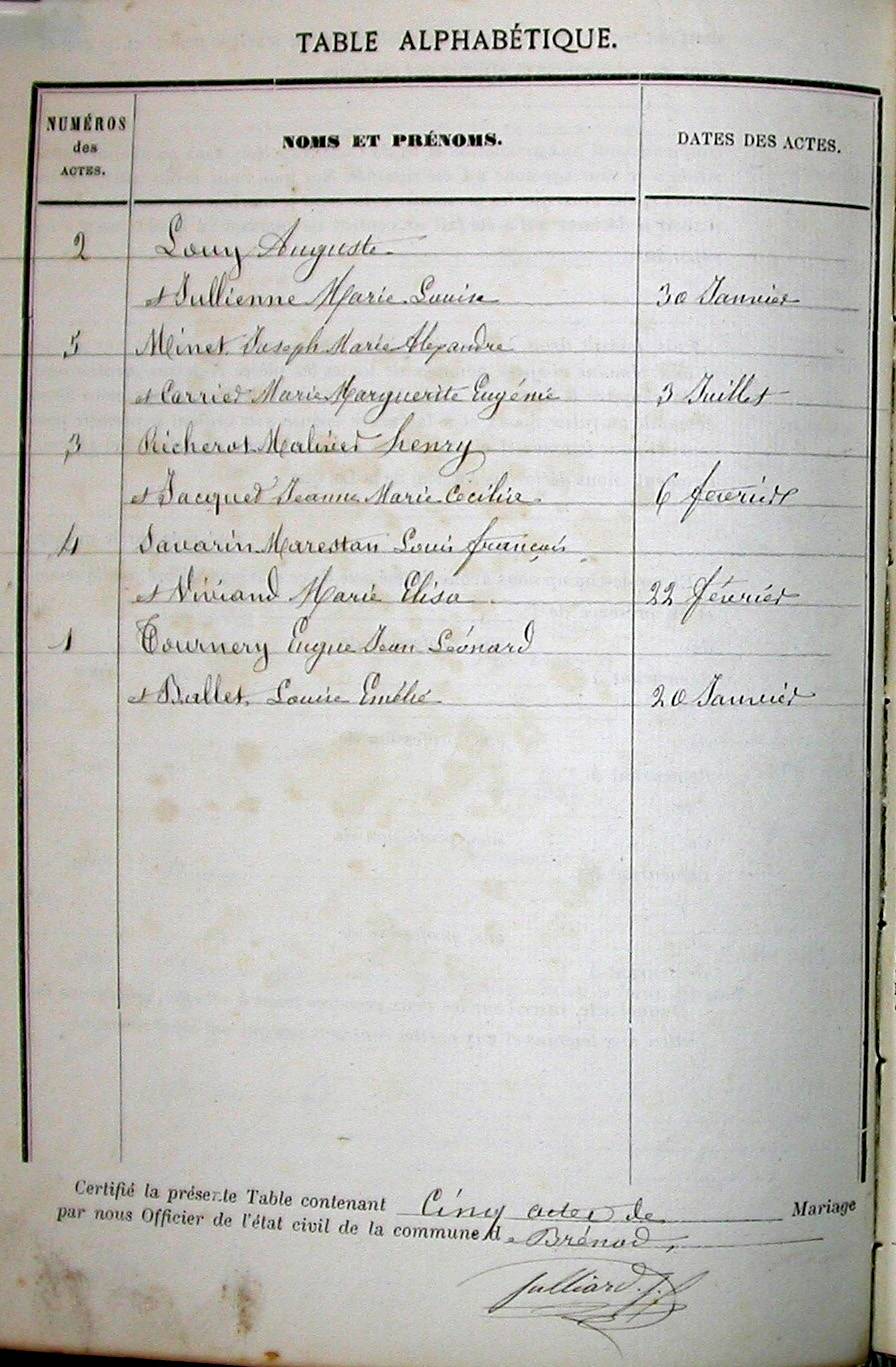 TABLE ALPHABÉTIQUE.
NUMÉROS des ACTES. NOMS ET PRÉNOMS. DATES DES ACTES.
2 Louy Auguste
et Jullienne Marie Louise 30 Janvier
5 Minet Joseph Marie Alexandre
et Carrier Marie Marguerite Eugénie 3 Juillet
3 Richerot Henry
et Jacquet Jeanne Marie 6 fevrier
4 Savarin Marestan Louis françois
et Viviand Marie Elisa 22 février
1 Tournery Eugne Jean Léonard
et Ballet Louise Emélie 20 Janvier
Certifié la présente Table contenant Cinq actes de Mariage
par nous Officier de l'état civil de la commune de Brénod,
Julliard. J.